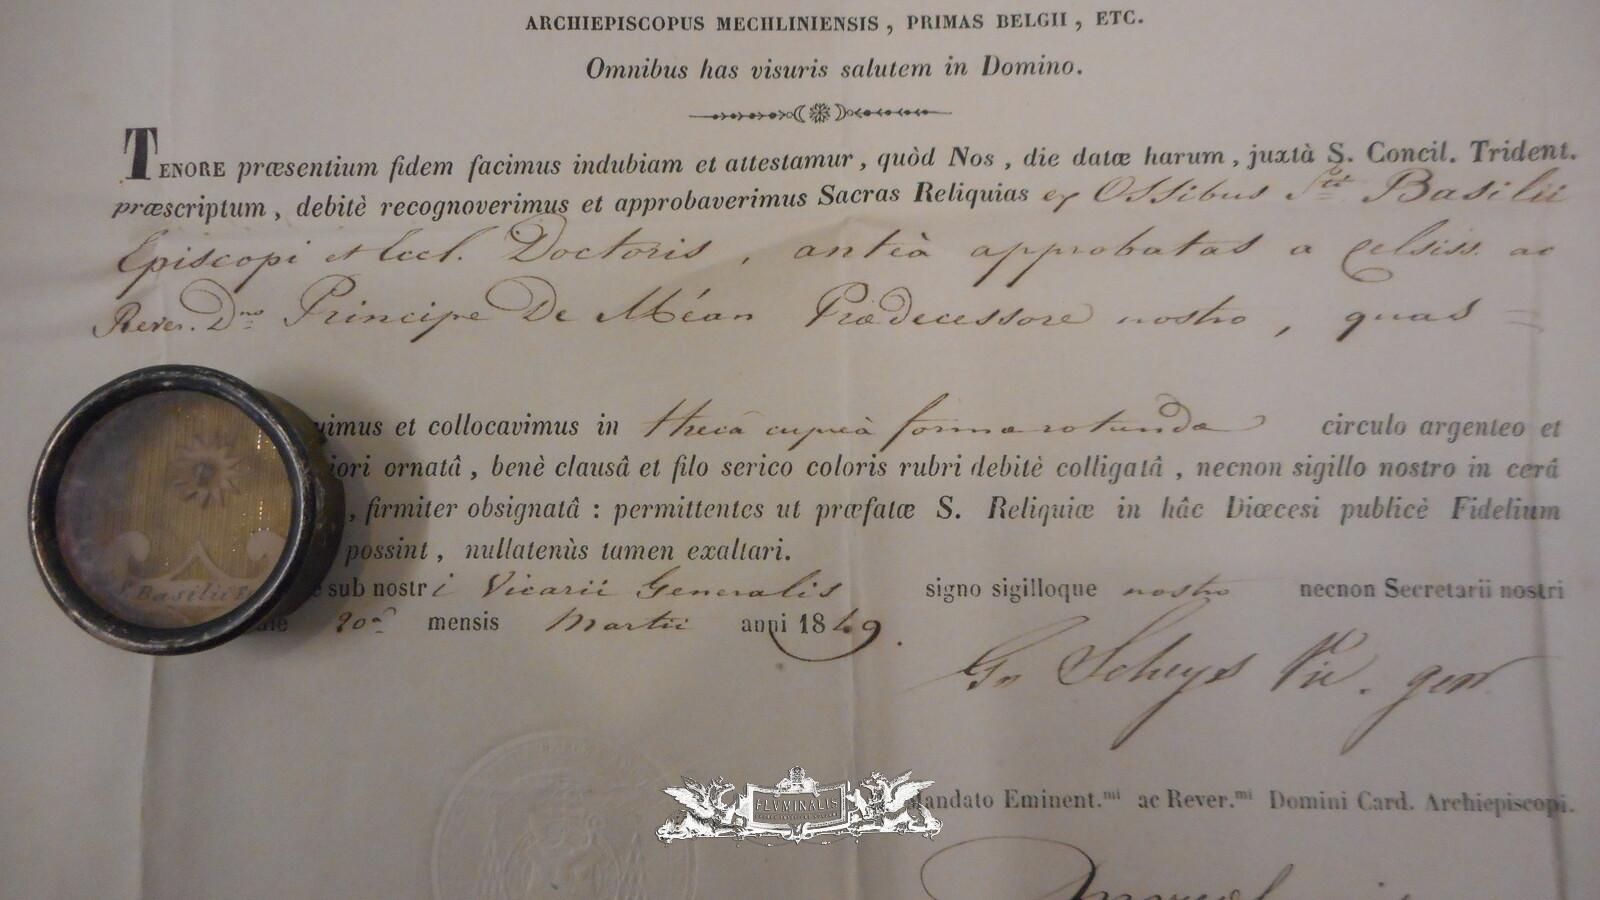 ARCHIEPISCOPUS MECHLINIENSIS, PRIMAS BELGII, ETC.
Omnibus has visuris salutem in Domino.
TENORE præsentium fidem facimus indubiam et attestamur, quòd Nos, die datæ harum, juxtà S. Concil. Trident.
præscriptum, debitè recognoverimus et approbaverimus Sacras Reliquias ex Ossibus Sti Basilii
Episcopi et Eccl. Doctoris, anteà approbatas a Celsiss. ac
Rever. Dno Principe De Méan Prædecessore nostro, quas =
uimus et collocavimus in thecâ cupreà formæ rotundæ circulo argenteo et
iori ornatâ, benè clausâ et filo serico coloris rubri debitè colligatâ, necnon sigillo nostro in cerâ
, firmiter obsignatâ: permittentes ut præfatæ S. Reliquiæ in hâc Diœcesi publicè Fidelium
possint, nullatenùs tamen exaltari.
e sub nostri Vicarii Generalis signo sigilloque nostro necnon Secretarii nostri
die 20a mensis Martii anni 1849.
S. Basilii E
Scheys Vic. gen
Mandato Eminent.mi ac Rever.mi Domini Card. Archiepiscopi.
FLVMINALIS